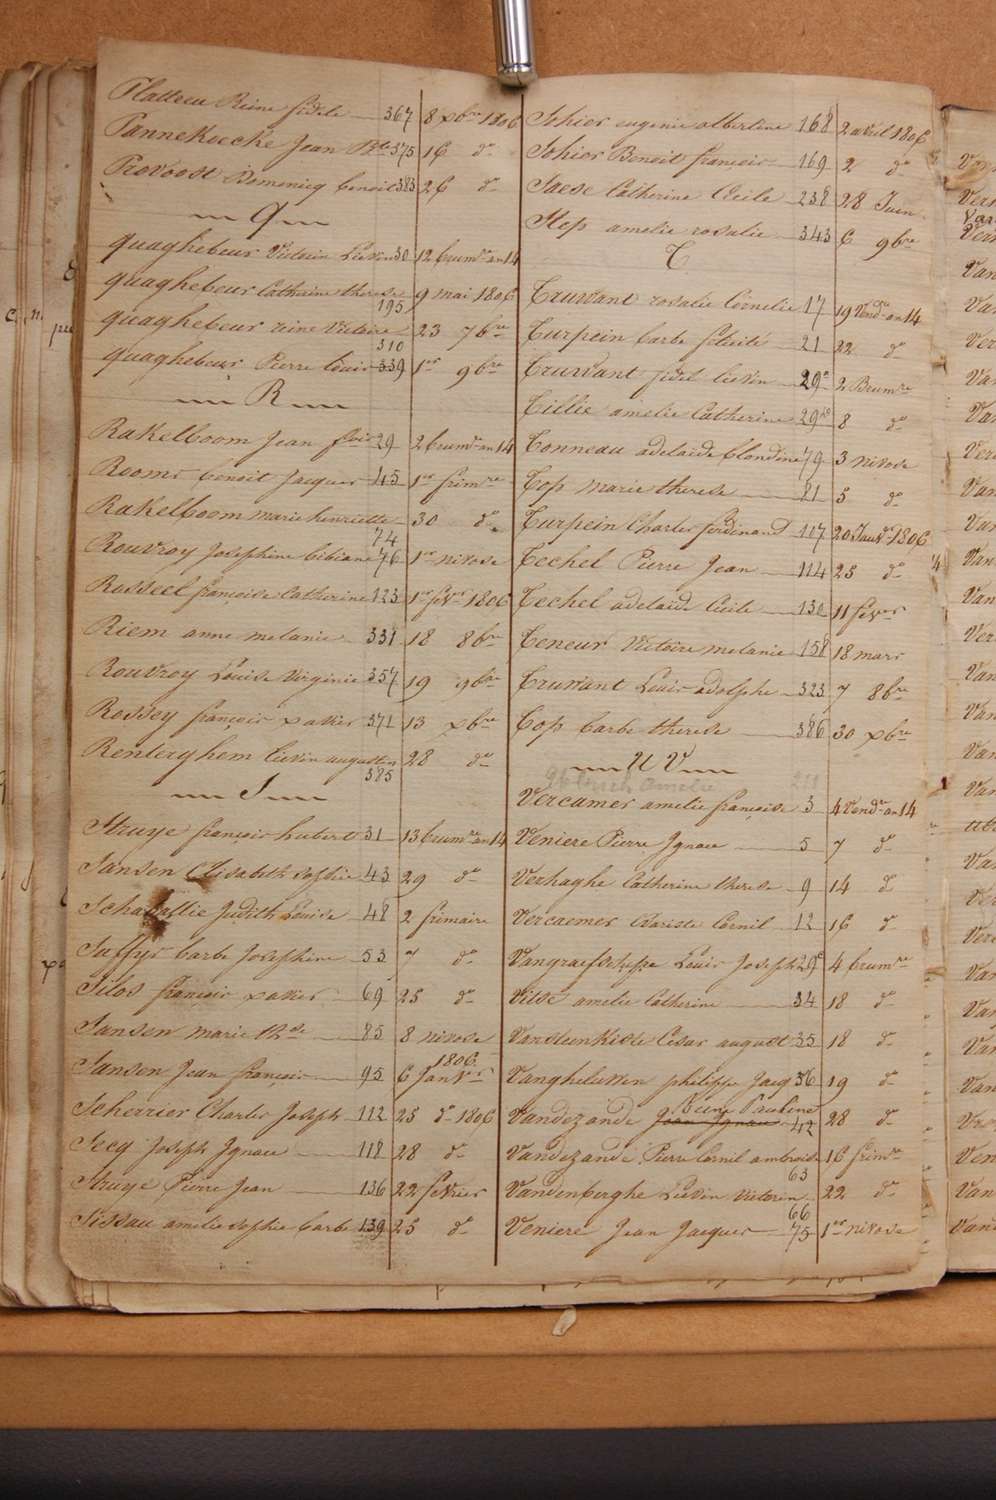 Platteeu Reine fidele 367 8 xbre 1806
Pannekoecke Jean Bte 375 16 do
Provoost Domeniq benoit 383 26 do
Q
quaghebeur Victoire Lievin 30 12 brumre an 14
quaghebeur Catherine therese 195 9 mai 1806
quaghebeur reine Victoire 310 23 7bre
quaghebeur Pierre Louis 339 1er 9bre
R
Rakelboom Jean fois 29 2 brumre an 14
Rooms benoit Jacques 45 1er frimre
Rakelboom marie henriette 74 30 do
Rouvroy Josephine bibiane 76 1er nivose
Rosseel françoise Catherine 123 1er fevr 1806
Riem anne melanie 331 18 8bre
Rouvroy Louise Virginie 357 19 9bre
Rossey françois xavier 371 13 xbre
Renteghem lievin augustin 385 28 do
S
Struye françois hubert 31 13 brumre an 14
Sansen Elisabeth sophie 43 29 do
Judith Louise 48 2 frimaire
Saffyr barbe Josephine 53 7 do
Silos françois xavier 69 25 do
Sansen marie 85 8 nivose
Sansen Jean françois 95 6 Janvr 1806
Scherrier Charles Joseph 112 25 do 1806
Secq Joseph Ignace 118 28 do
Struye Pierre Jean 136 22 fevrier
Sissau amelie sophie barbe 139 25 do
Sohier eugenie albertine 168 2 avril 1806
Sohier Benoit françois 169 2 do
Saese Catherine Cecile 238 28 Juin
Stop amelie rosalie 343 6 9bre
T
Truwant rosalie Cornelie 17 19 Vendre an 14
Turpein barbe felicité 21 22 do
Truwant fidel lievin 29 2 Brumre
Tillie amelie Catherine 29 8 do
Tonneau adelaide blondine 79 3 nivose
Top marie therese 81 5 do
Turpein Charles ferdinand 107 20 Janvr 1806
Techel Pierre Jean 114 25 do
Techel adelaide Cecile 130 11 fevr
Teneur Victoire melanie 158 18 mars
Truwant Louis adolphe 323 7 8bre
Top barbe therese 386 30 xbre
U V
Vercamer amelie françoise 3 4 Vendre an 14
Veniere Pierre Ignace 5 7 do
Verhaghe Catherine therese 9 14 do
Vercaemer Evariste Cornil 12 16 do
Vangraefschepe Louis Joseph 29 4 brumre
Vitse amelie Catherine 34 18 do
Vansteenkiste Cesar august 35 18 do
Vangheluwen philippe Jacq 36 19 do
Vandezande Jean Ignace Reine Pauline 42 28 do
Vandezande Pierre Cornil ambroise 63 16 frimre
Vandenberghe Lievin Victorin 66 22 do
Veniere Jean Jacques 75 1er nivose